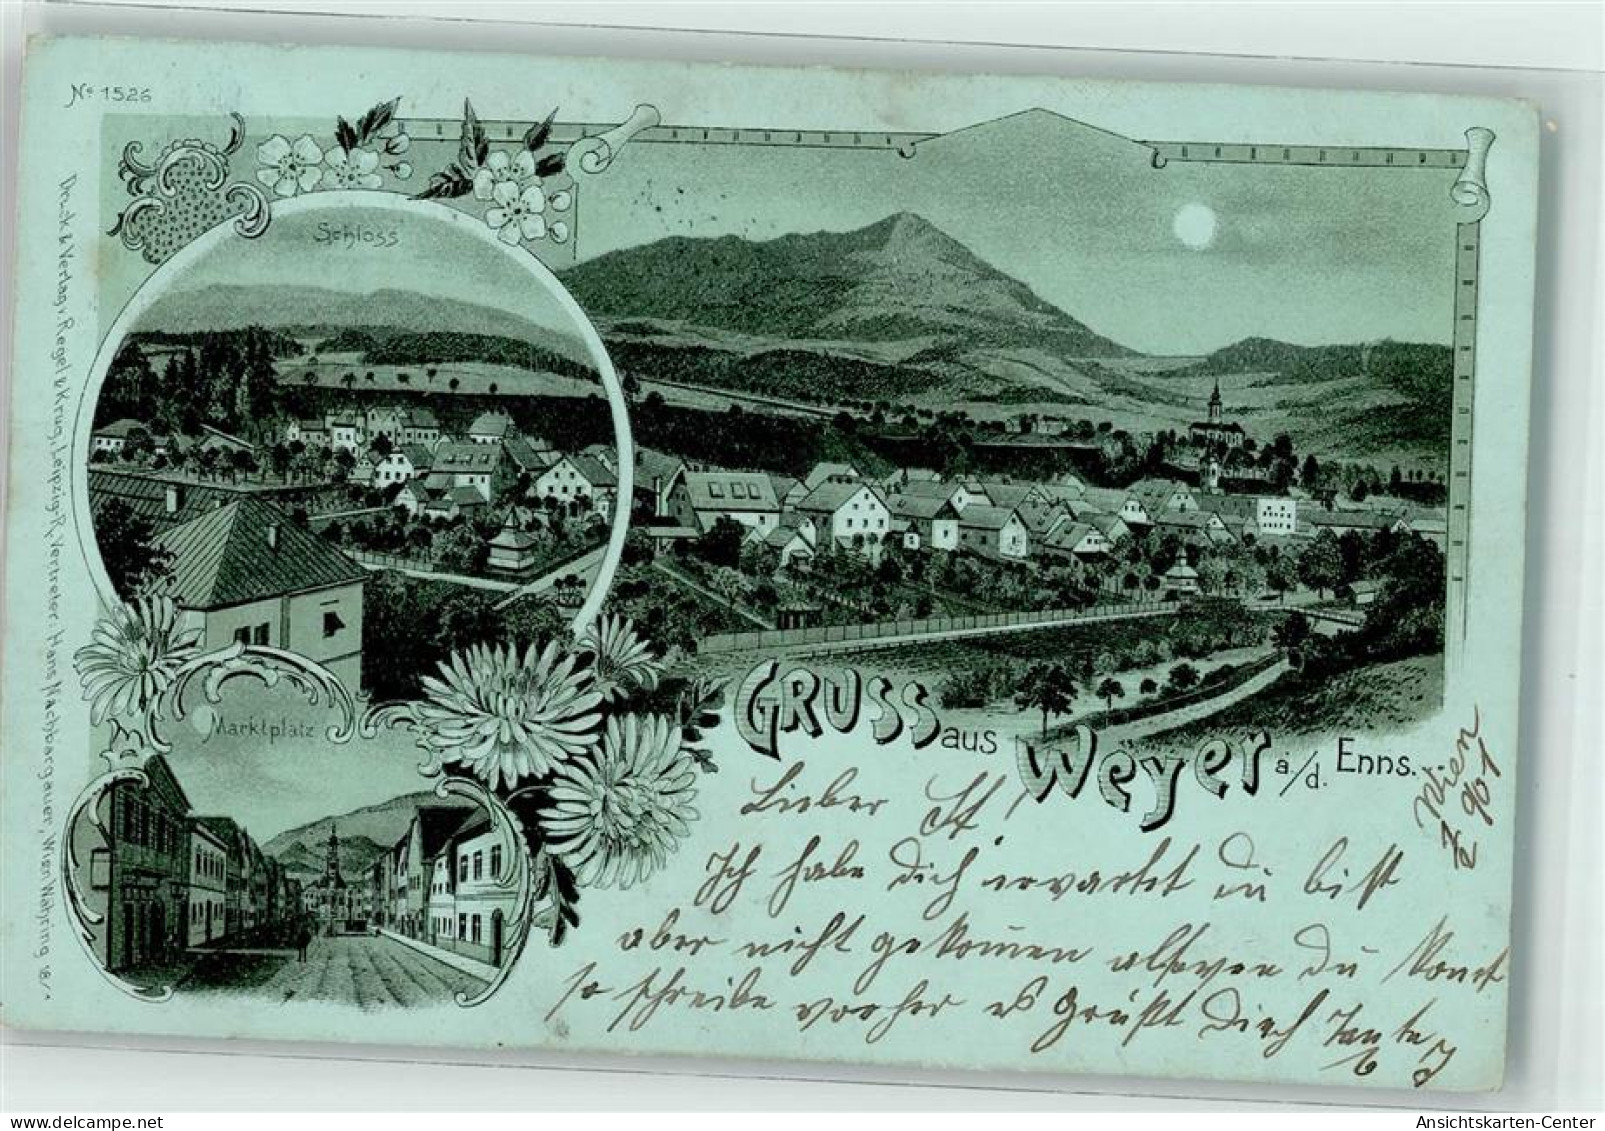 No 1526
Schloss
Druck & Verlag v. Regel & Krug, Leipzig-R. Vertreter Hans Nachbargauer, Wien, Währing 18/1
Marktplatz
GRUSS aus Weyer a/d. Enns.
Wien
7/2 901
Lieber
Ich habe dich erwartet du bist
aber nicht gekommen also wen du komst
so schreibe vorher es Grüßt Dich Tante
Ansichtskarten-Center